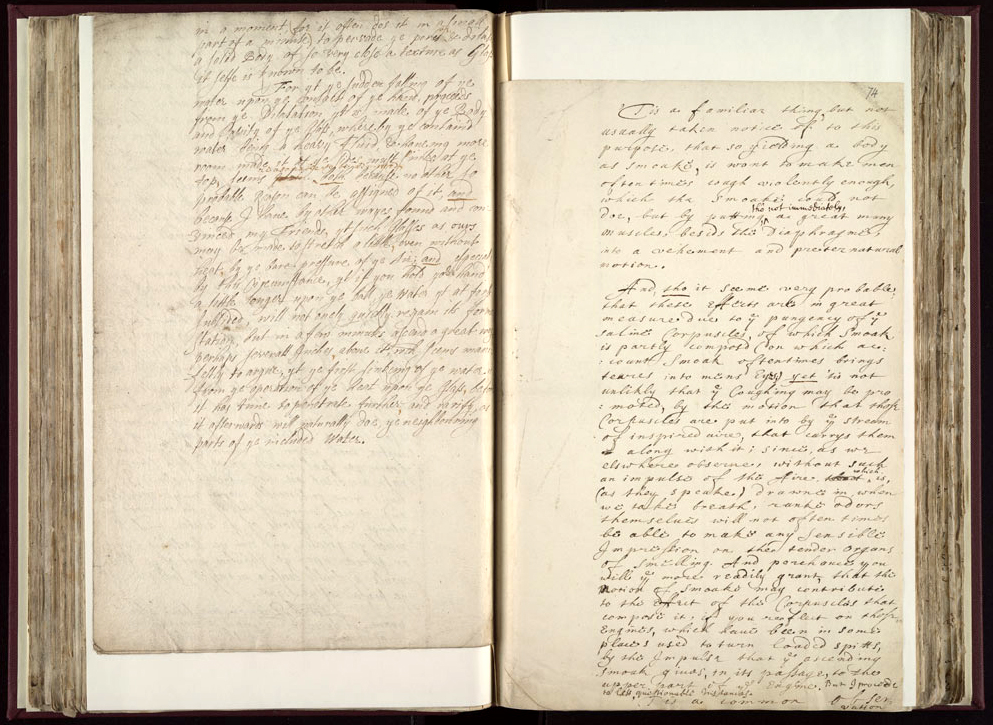 in a moment, for it often dos it in a small
part of a minute) to pervade ye pores
a solid Body of so very close a texture as Glass
it selfe is known to be.
For yt ye sudden falling of ye
water upon ye contact of ye hand, proceeds
from ye Dilatation yt is made of ye Body
and Cavity of ye Glass, whereby ye contained
water being a heavy fluid &
room made at ye
top, seems because no other so
probable reason can be assigned of it, and
because I have by other wayes found and con
vinced my Friends, yt such Glasses as ours
may be made to stretch a little, even without
heat, by ye bare pressure of ye Air; and
by this Circumstance, yt if you hold your hand
a little longer upon ye ball, ye Water yt at first
subsided, will not only quickly regain its former
station, but in a few minutes ascend a great way
perhaps severall Inches above it; seems
to argue, yt ye first sinking of ye water
from ye operation of ye Heat upon ye Glass, before
it has time to penetrate further, and rarify, as
it afterwards will naturally doe, ye neighbouring
parts of ye included Water.
74
Tis a familiar thing, but not
usually taken notice of to this
purpose, that so yielding a body
as smoake, is wont to make men
oftentimes cough violently enough,
which the Smoake could not
doe, but by putting, tho not immediately, a great many
muscles, besids the Diaphragme,
into a vehement and preternatural
motion.
And tho it seeme very probable
that these Effects are in great
measure due to ye pungency of ye
saline Corpuscles, of which Smoak
is partly compos'd (on which ac:
:count Smoak oftentimes brings
teares into mens Eyes) yet 'tis not
unlikely that ye Coughing may be pro
:moted, by the motion that those
Corpuscles are put into by ye stream
of inspired aire, that carrys them
along with it; since, as we
elswhere observe, without such
an impulse of the Aire, which is,
(as they speake) drawne in, when
we take breath, ranke odors
themselves will not often times
be able to make any sensible
Impression on the tender Organs
of smelling. And perchance you
will ye more readily grant, that the
motion of Smoake may contribute
to the Effect of the Corpuscles that
compose it, if you reflect on those
Engines, which have been in some
places used to turn loaded spitts,
by the Impulse that ye ascending
Smoak gives, in its passage, to the
upper part of ye Engine. But I proceede
to less questionable Instances.
Tis a common Obser
vation